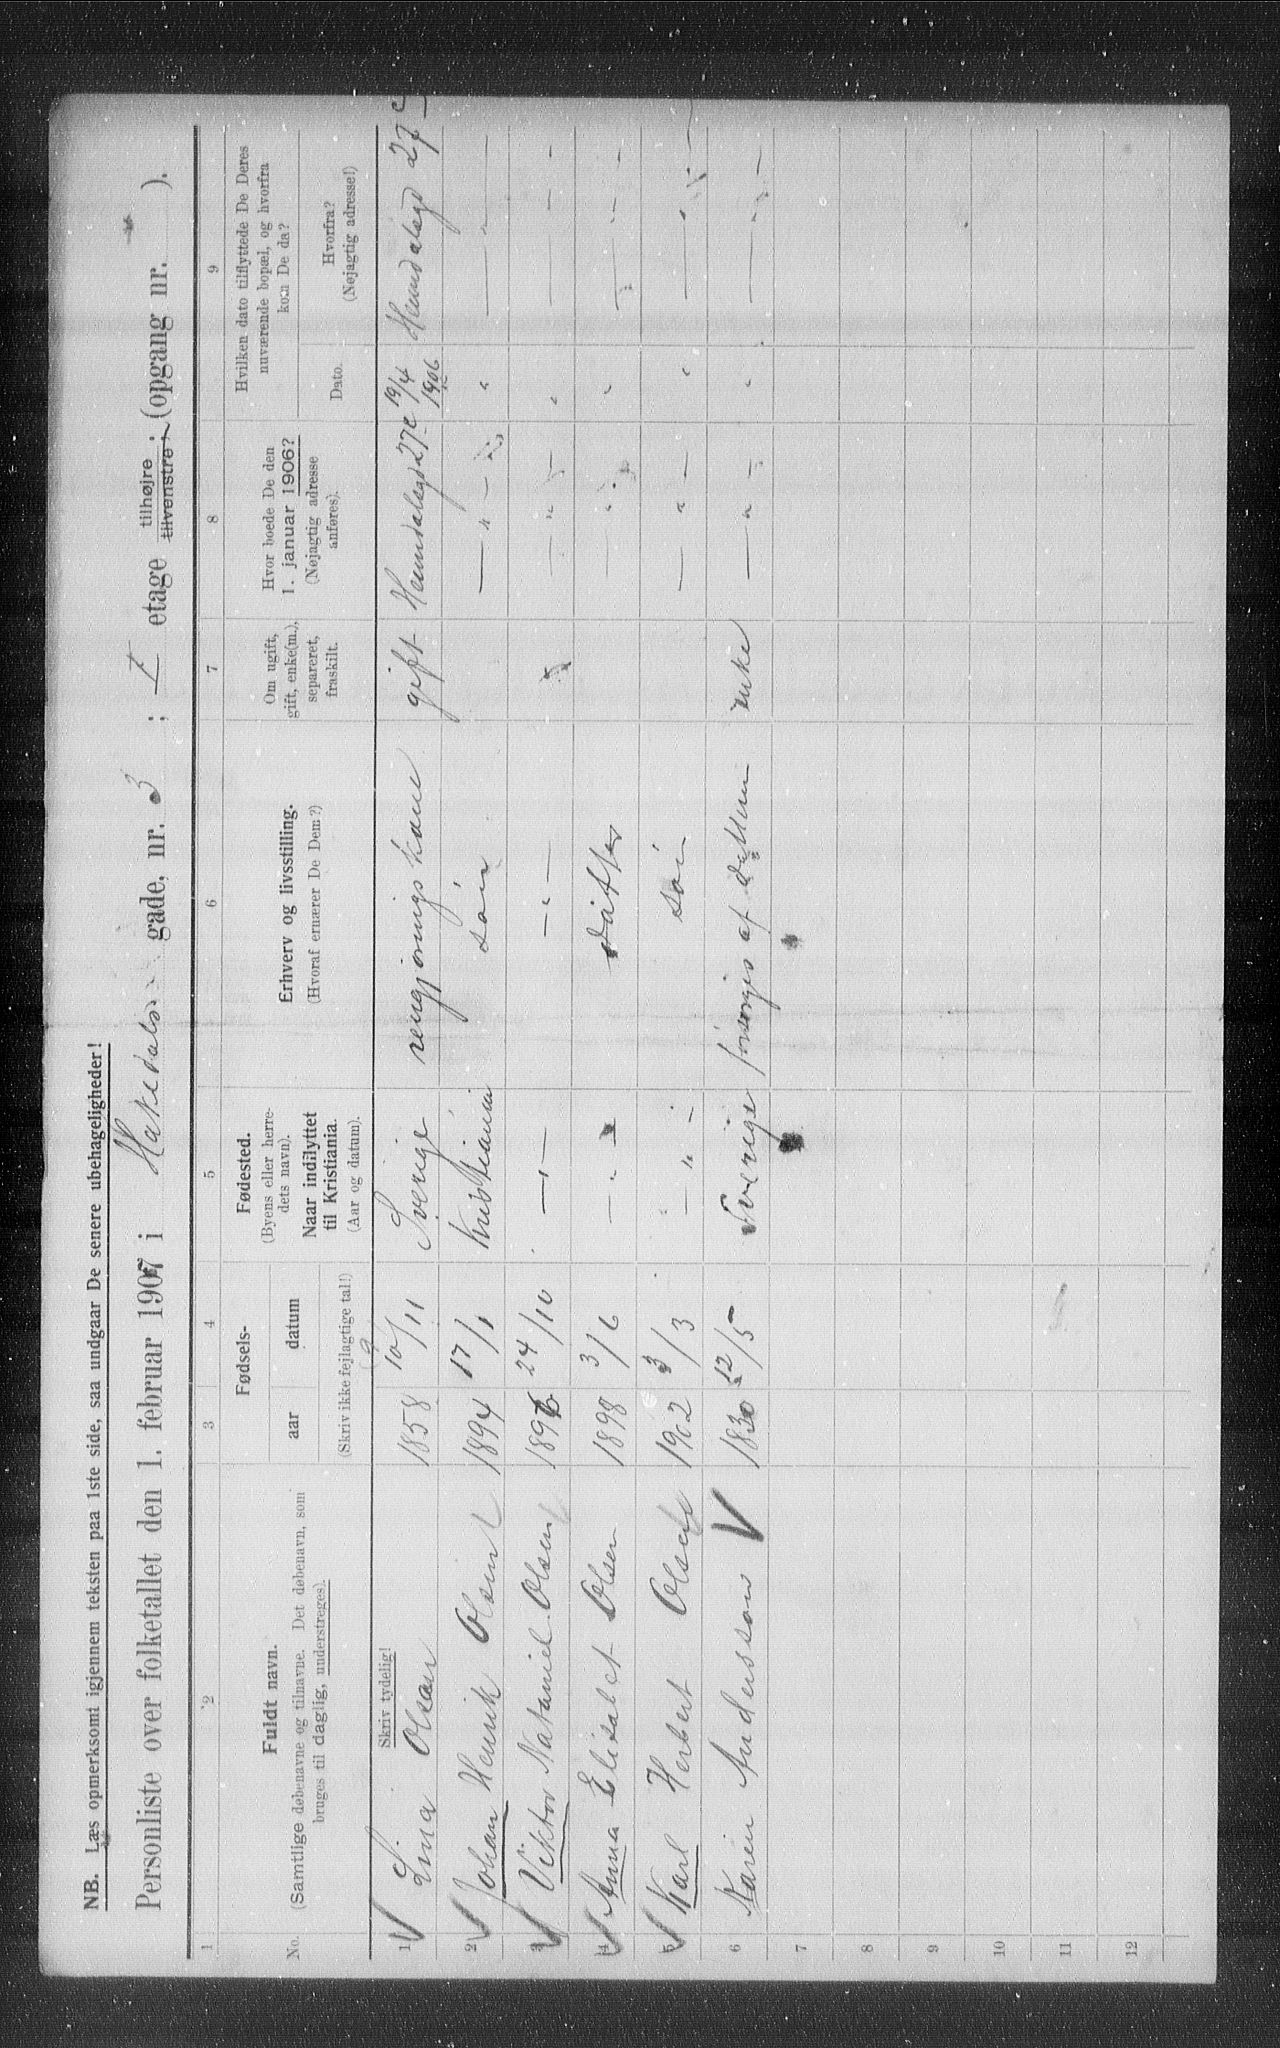 NB. Læs opmerksomt igjennem teksten paa 1ste side, saa undgaar De senere ubehageligheder!
Personliste over folketallet den 1. februar 1907 i Hakedals gade, nr. 3 ; 1 etage tilhøjre ; tilvenstre ; (opgang nr. ).
1 2 3 4 5 6 7 8 9
No.
Fuldt navn.
(Samtlige døbenavne og tilnavne. Det døbenavn, som
bruges til daglig, understreges).
Fødsels-
aar datum
(Skriv ikke fejlagtige tal!)
Fødested.
(Byens eller herre-
dets navn).
Naar indflyttet
til Kristiania.
(Aar og datum).
Erhverv og livsstilling.
(Hvoraf ernærer De Dem?)
Om ugift,
gift, enke(m.),
separeret,
fraskilt.
Hvor boede De den
1. januar 1906?
(Nøjagtig adresse
anføres).
Hvilken dato tilflyttede De Deres
nuværende bopæl, og hvorfra
kom De da?
Dato.
Hvorfra?
(Nøjagtig adresse!)
Skriv tydelig!
1 Lina Olsen 1858 10/11 Sverige rengjørings kone gift Heimdalsgd 27c 19/4 1906 Heimdalsgd 27c
2 Johan Henrik Olsen 1894 17/1 Kristiania søn — " — " — " —
3 Viktor Nataniel Olsen 1896 24/10 — " — — " — — " — " — " —
4 Anna Elisabet Olsen 1898 3/6 — " — datter — " — " — " —
5 Karl Herbert Olsen 1902 3/3 — " — søn — " — " — " —
6 Karen Andersson 1830 12/5 Sverige forsørges af datteren enke — " — " — " —
7
8
9
10
11
12